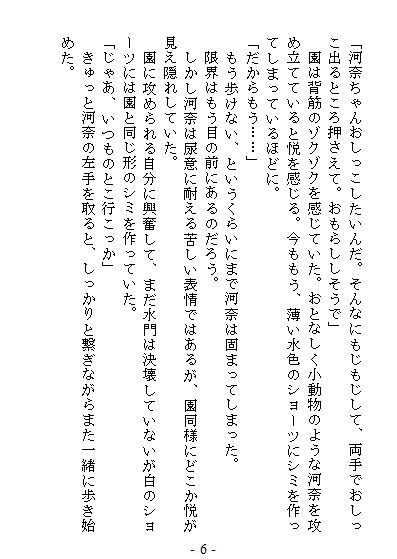 「河奈ちゃんおしっこしたいんだ。そんなにもじもじして、両手でおしっ
こ出るところ押さえて。おもらししそうで」
園は背筋のゾクゾクを感じていた。おとなしく小動物のような河奈を攻
め立てていると悦を感じる。今ももう、薄い水色のショーツにシミを作っ
てしまっているほどに。
「だからもう……」
もう歩けない、というくらいにまで河奈は固まってしまった。
限界はもう目の前にあるのだろう。
しかし河奈は尿意に耐える苦しい表情ではあるが、園同様にどこか悦が
見え隠れしていた。
園に攻められる自分に興奮して、まだ水門は決壊していないが白のショ
ーツには園と同じ形のシミを作っていた。
「じゃあ、いつものとこ行こっか」
きゅっと河奈の左手を取ると、しっかりと繋ぎながらまた一緒に歩き始
めた。
- 6 -